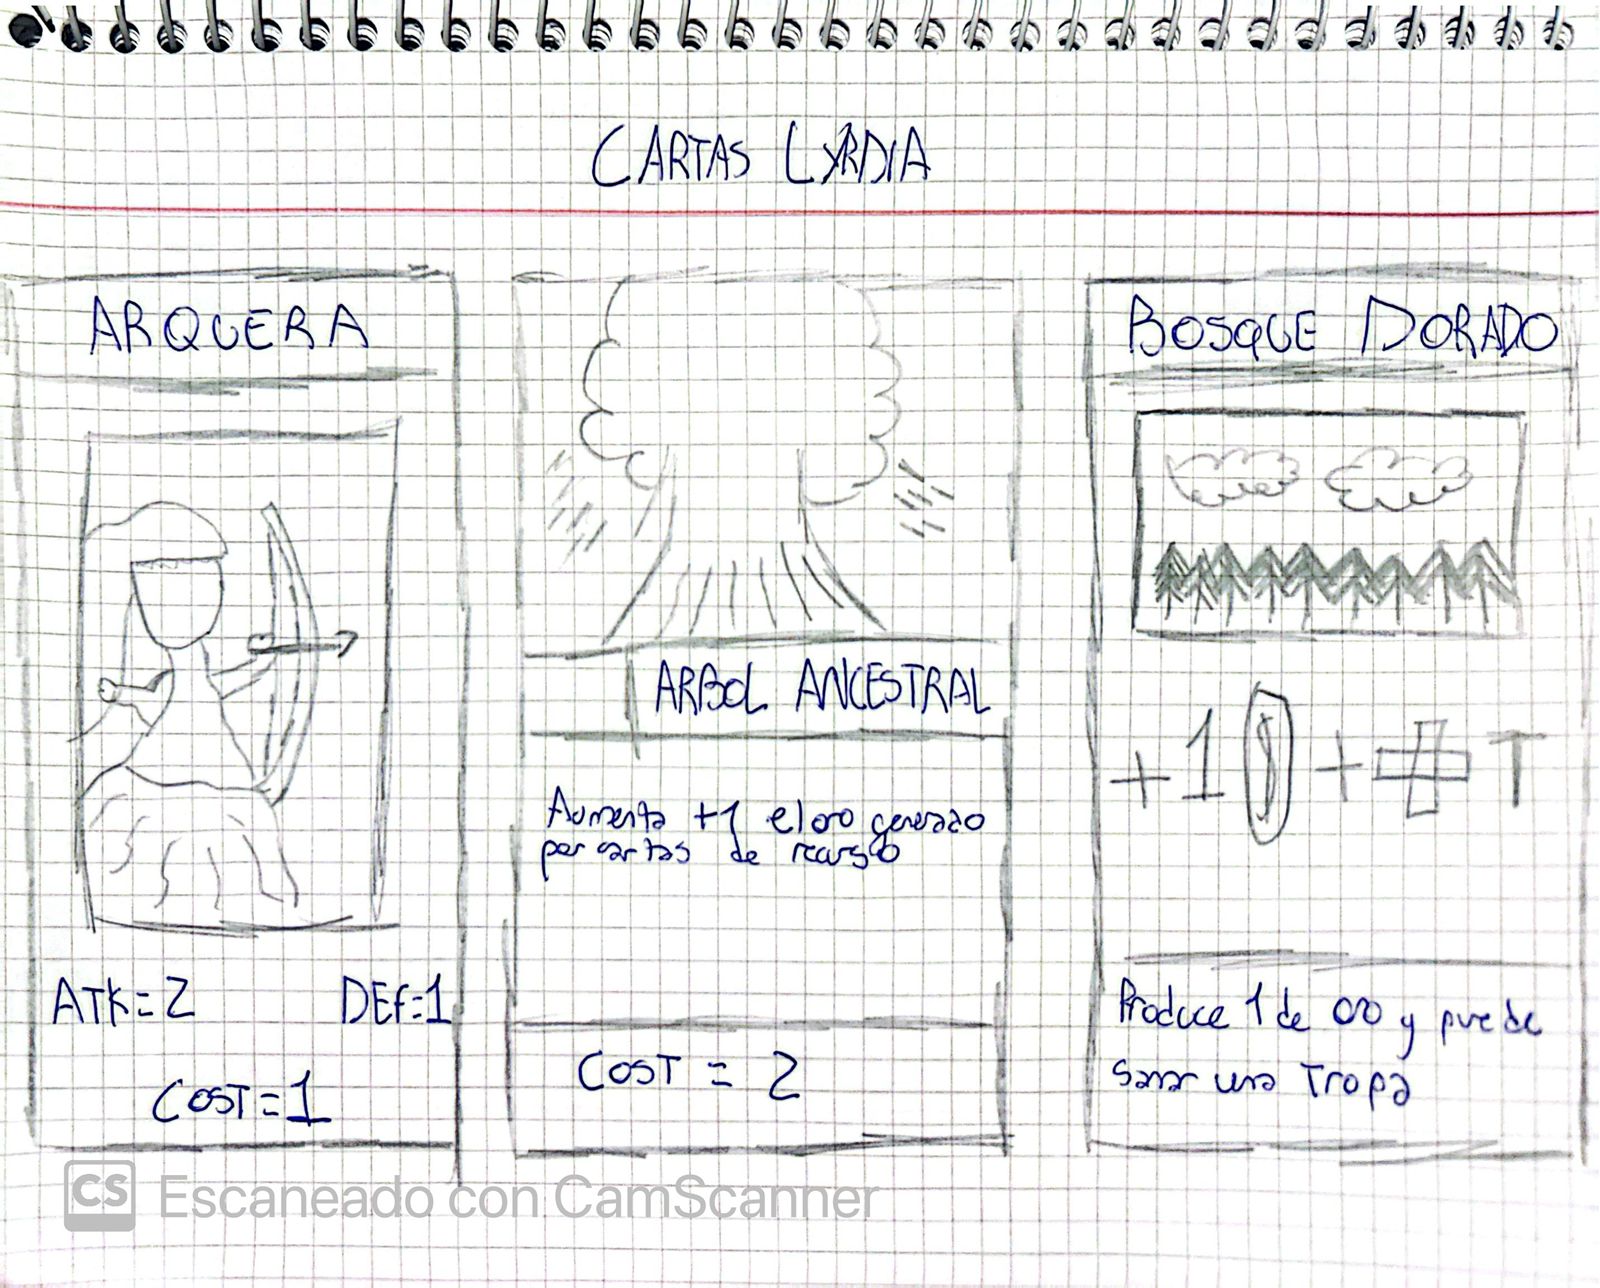 CARTAS LYRDIA
ARQUERA
ATK=2 DEF=1
COST=1
ARBOL ANCESTRAL
Aumenta +1 el oro generado
por cartas de recurso
COST = 2
BOSQUE DORADO
+1 $ + T
Produce 1 de oro y puede
sanar una Tropa
CS Escaneado con CamScanner